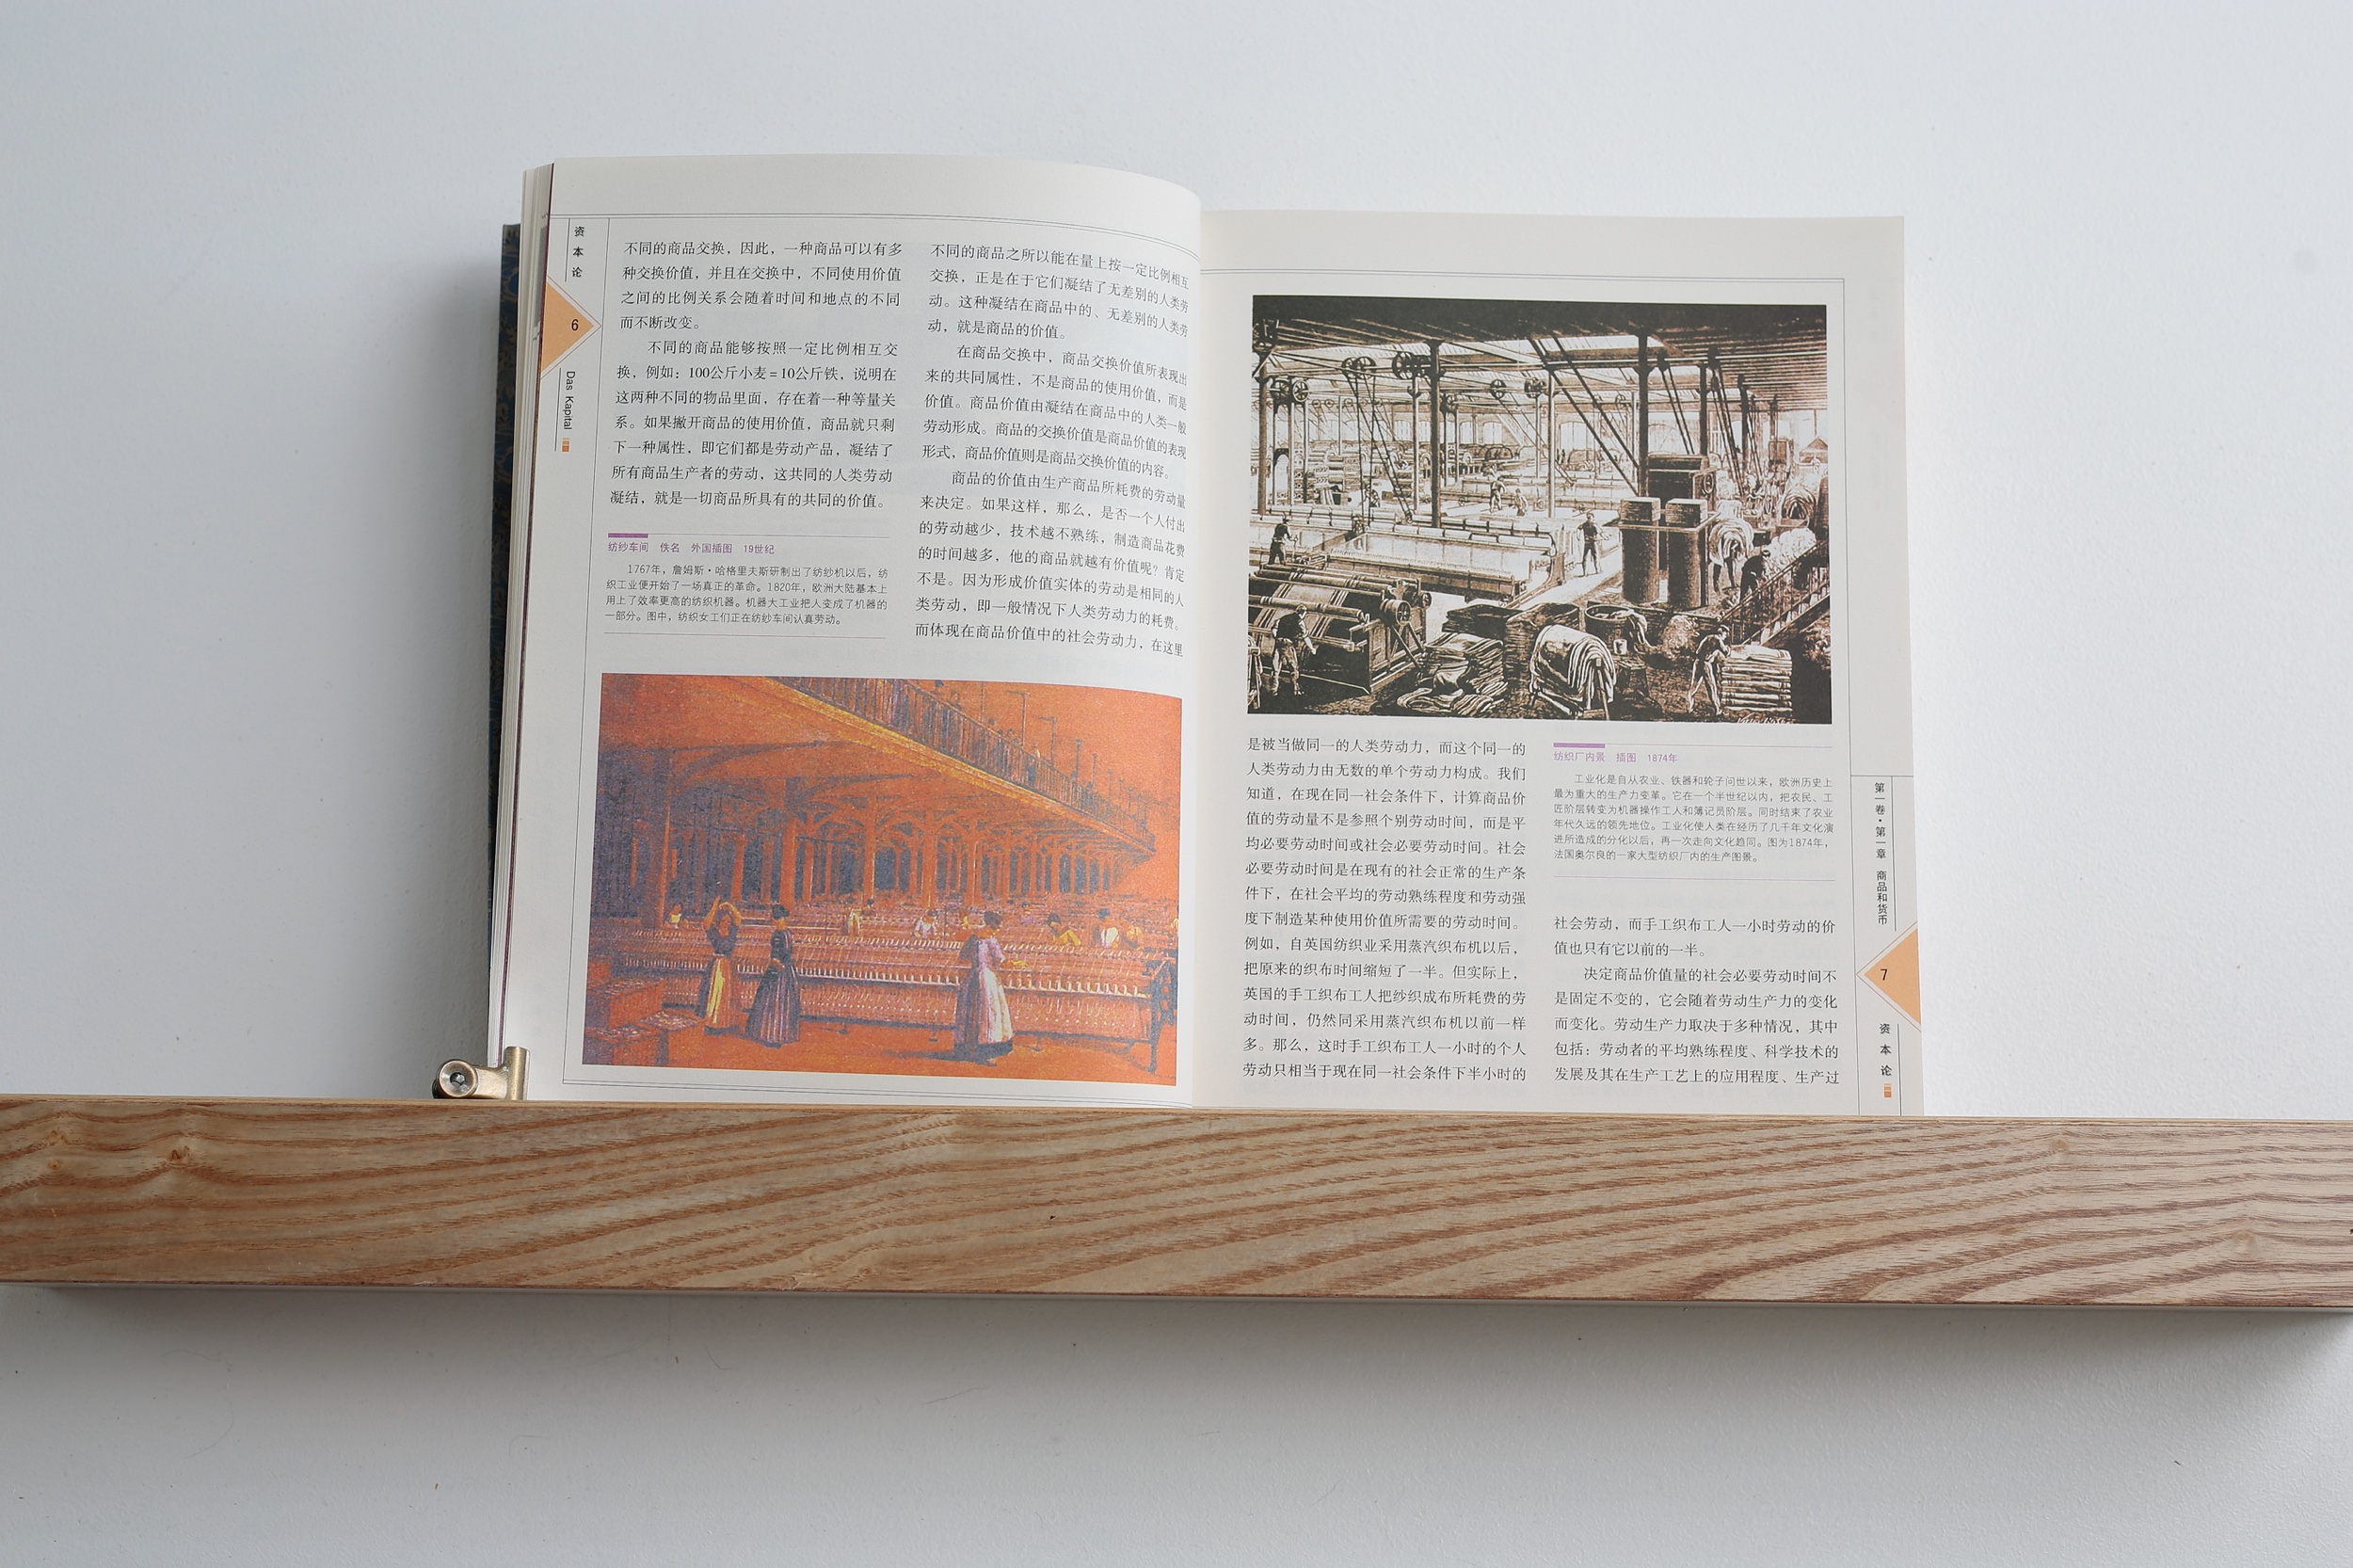 资本论
6
Das Kapital
不同的商品交换，因此，一种商品可以有多
种交换价值，并且在交换中，不同使用价值
之间的比例关系会随着时间和地点的不同
而不断改变。
不同的商品能够按照一定比例相互交
换，例如：100公斤小麦=10公斤铁，说明在
这两种不同的物品里面，存在着一种等量关
系。如果撇开商品的使用价值，商品就只剩
下一种属性，即它们都是劳动产品，凝结了
所有商品生产者的劳动，这共同的人类劳动
凝结，就是一切商品所具有的共同的价值。
纺纱车间　佚名　外国插图　19世纪
1767年，詹姆斯·哈格里夫斯研制出了纺纱机以后，纺
织工业便开始了一场真正的革命。1820年，欧洲大陆基本上
用上了效率更高的纺织机器。机器大工业把人变成了机器的
一部分。图中，纺织女工们正在纺纱车间认真劳动。
不同的商品之所以能在量上按一定比例相互
交换，正是在于它们凝结了无差别的人类劳
动。这种凝结在商品中的、无差别的人类劳
动，就是商品的价值。
在商品交换中，商品交换价值所表现出
来的共同属性，不是商品的使用价值，而是
价值。商品价值由凝结在商品中的人类一般
劳动形成。商品的交换价值是商品价值的表现
形式，商品价值则是商品交换价值的内容。
商品的价值由生产商品所耗费的劳动量
来决定。如果这样，那么，是否一个人付出
的劳动越少，技术越不熟练，制造商品花费
的时间越多，他的商品就越有价值呢？肯定
不是。因为形成价值实体的劳动是相同的人
类劳动，即一般情况下人类劳动力的耗费。
而体现在商品价值中的社会劳动力，在这里
是被当做同一的人类劳动力，而这个同一的
人类劳动力由无数的单个劳动力构成。我们
知道，在现在同一社会条件下，计算商品价
值的劳动量不是参照个别劳动时间，而是平
均必要劳动时间或社会必要劳动时间。社会
必要劳动时间是在现有的社会正常的生产条
件下，在社会平均的劳动熟练程度和劳动强
度下制造某种使用价值所需要的劳动时间。
例如，自英国纺织业采用蒸汽织布机以后，
把原来的织布时间缩短了一半。但实际上，
英国的手工织布工人把纱织成布所耗费的劳
动时间，仍然同采用蒸汽织布机以前一样
多。那么，这时手工织布工人一小时的个人
劳动只相当于现在同一社会条件下半小时的
纺织厂内景　插图　1874年
工业化是自从农业、铁器和轮子问世以来，欧洲历史上
最为重大的生产力变革。它在一个半世纪以内，把农民、工
匠阶层转变为机器操作工人和簿记员阶层。同时结束了农业
年代久远的领先地位。工业化使人类在经历了几千年文化演
进所造成的分化以后，再一次走向文化趋同。图为1874年，
法国奥尔良的一家大型纺织厂内的生产图景。
社会劳动，而手工织布工人一小时劳动的价
值也只有它以前的一半。
决定商品价值量的社会必要劳动时间不
是固定不变的，它会随着劳动生产力的变化
而变化。劳动生产力取决于多种情况，其中
包括：劳动者的平均熟练程度、科学技术的
发展及其在生产工艺上的应用程度、生产过
第一卷·第一章　商品和货币
7
资本论